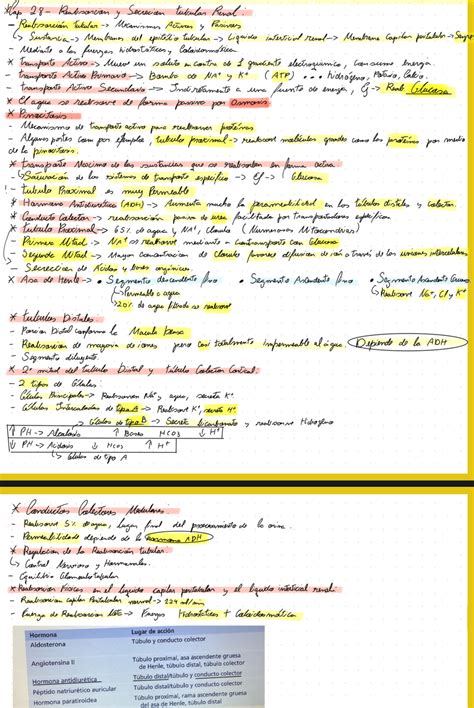 Cap 28 - Reabsorción y Secreción tubular Renal:
- Reabsorción tubular -> Mecanismos Activos y Pasivos
↳ Sustancia -> Membranas del epitelio tubular -> Líquido intersticial renal -> Membrana Capilar peritubular -> Sangre
- Mediante a las fuerzas hidrostáticas y Coloidosmótica
* transporte Activo -> Mueve un soluto en contra de 1 gradiente electroquímico, consume energía.
- transporte Activo Primario -> Bomba de Na+ y K+ (ATP) ... hidrógeno, Potasio, Calcio.
- transporte Activo Secundario -> Indirectamente a una fuente de energía, Ej -> Reab. Glucosa
* El agua se reabsorve de forma pasiva por Osmosis
* Pinocitosis
- Mecanismo de transporte activo para reabsorver proteínas
- Algunas partes como por ejemplo, tubulo proximal -> reabsorve moléculas grandes como las proteínas por medio
de la pinocitosis.
* transporte Máximo de las sustancias que se reabsorben en forma activa
↳ Saturación de los sistemas de transporte específico -> Ej -> Glucosa
- tubulo Proximal es muy Permeable
* Hormona Antidiurética (ADH) -> Aumenta mucho la permeabilidad en los túbulos distales y colector.
* Conducto Colector -> reabsorción pasiva de urea facilitada por transportadores específicos
* tubulo Proximal -> 65% de agua y Na+, Cloruro (Numerosas Mitocondrias)
- Primera Mitad -> Na+ se reabsorve mediante a Cotransporte con Glucosa
- Segunda Mitad -> Mayor Concentración de Cloruro favorece difusión de ión a través de las uniones intercelulares
- Secreción de Ácidos y bases orgánicos.
* Asa de Henle -> • Segmento descendente fino • Segmento Ascendente fino • Segmento Ascendente Grueso
↳ Permeable a agua ↳ Reabsorve Na+, Cl y K+
↳ 20% de agua filtrada se reabsorve
* tubulos Distales
- Porción Distal conforma la Macula Densa
- Reabsorción de mayoría de iones pero casi totalmente impermeable al agua. Depende de la ADH
- Segmento diluyente.
* 2ª mitad del tubulo Distal y túbulo Colector Cortical:
- 2 tipos de Células:
- Células Principales -> Reabsorven Na+ y agua, secreta K+.
- Células Intercaladas de tipo A -> Reabsorve K+, secreta H+
↳ Células de tipo B -> Secreta bicarbonato y reabsorve Hidrógeno
↑ PH -> Alcalosis ↑ Bases HCO3 ↓ H+
↓ PH -> Acidosis ↓ HCO3 ↑ H+
↳ Células de tipo A
* Conductos Colectores Medulares:
- Reabsorve 5% de agua, lugar final del procesamiento de la orina.
- Permeabilidad depende de la hormona ADH
* Regulación de la Reabsorción tubular.
↳ Control Nervioso y Hormonales.
- Equilibrio Glomerulotubular
* Reabsorción Físicas en el líquido capilar peritubular y el líquido intersticial renal:
- Reabsorción capilar Peritubular normal -> 124 ml/min
- Fuerza de Reabsorción Neta -> Fuerzas Hidrostáticas + Coloidosmóticas
Hormona Lugar de acción
Aldosterona Túbulo y conducto colector
Angiotensina II Túbulo proximal, asa ascendente gruesa
de Henle, túbulo distal, túbulo colector
Hormona antidiurética Túbulo distal/túbulo y conducto colector
Péptido natriurético auricular Túbulo distal/túbulo y conducto colector
Hormona paratiroidea Túbulo proximal, rama ascendente gruesa
del asa de Henle, túbulo distal